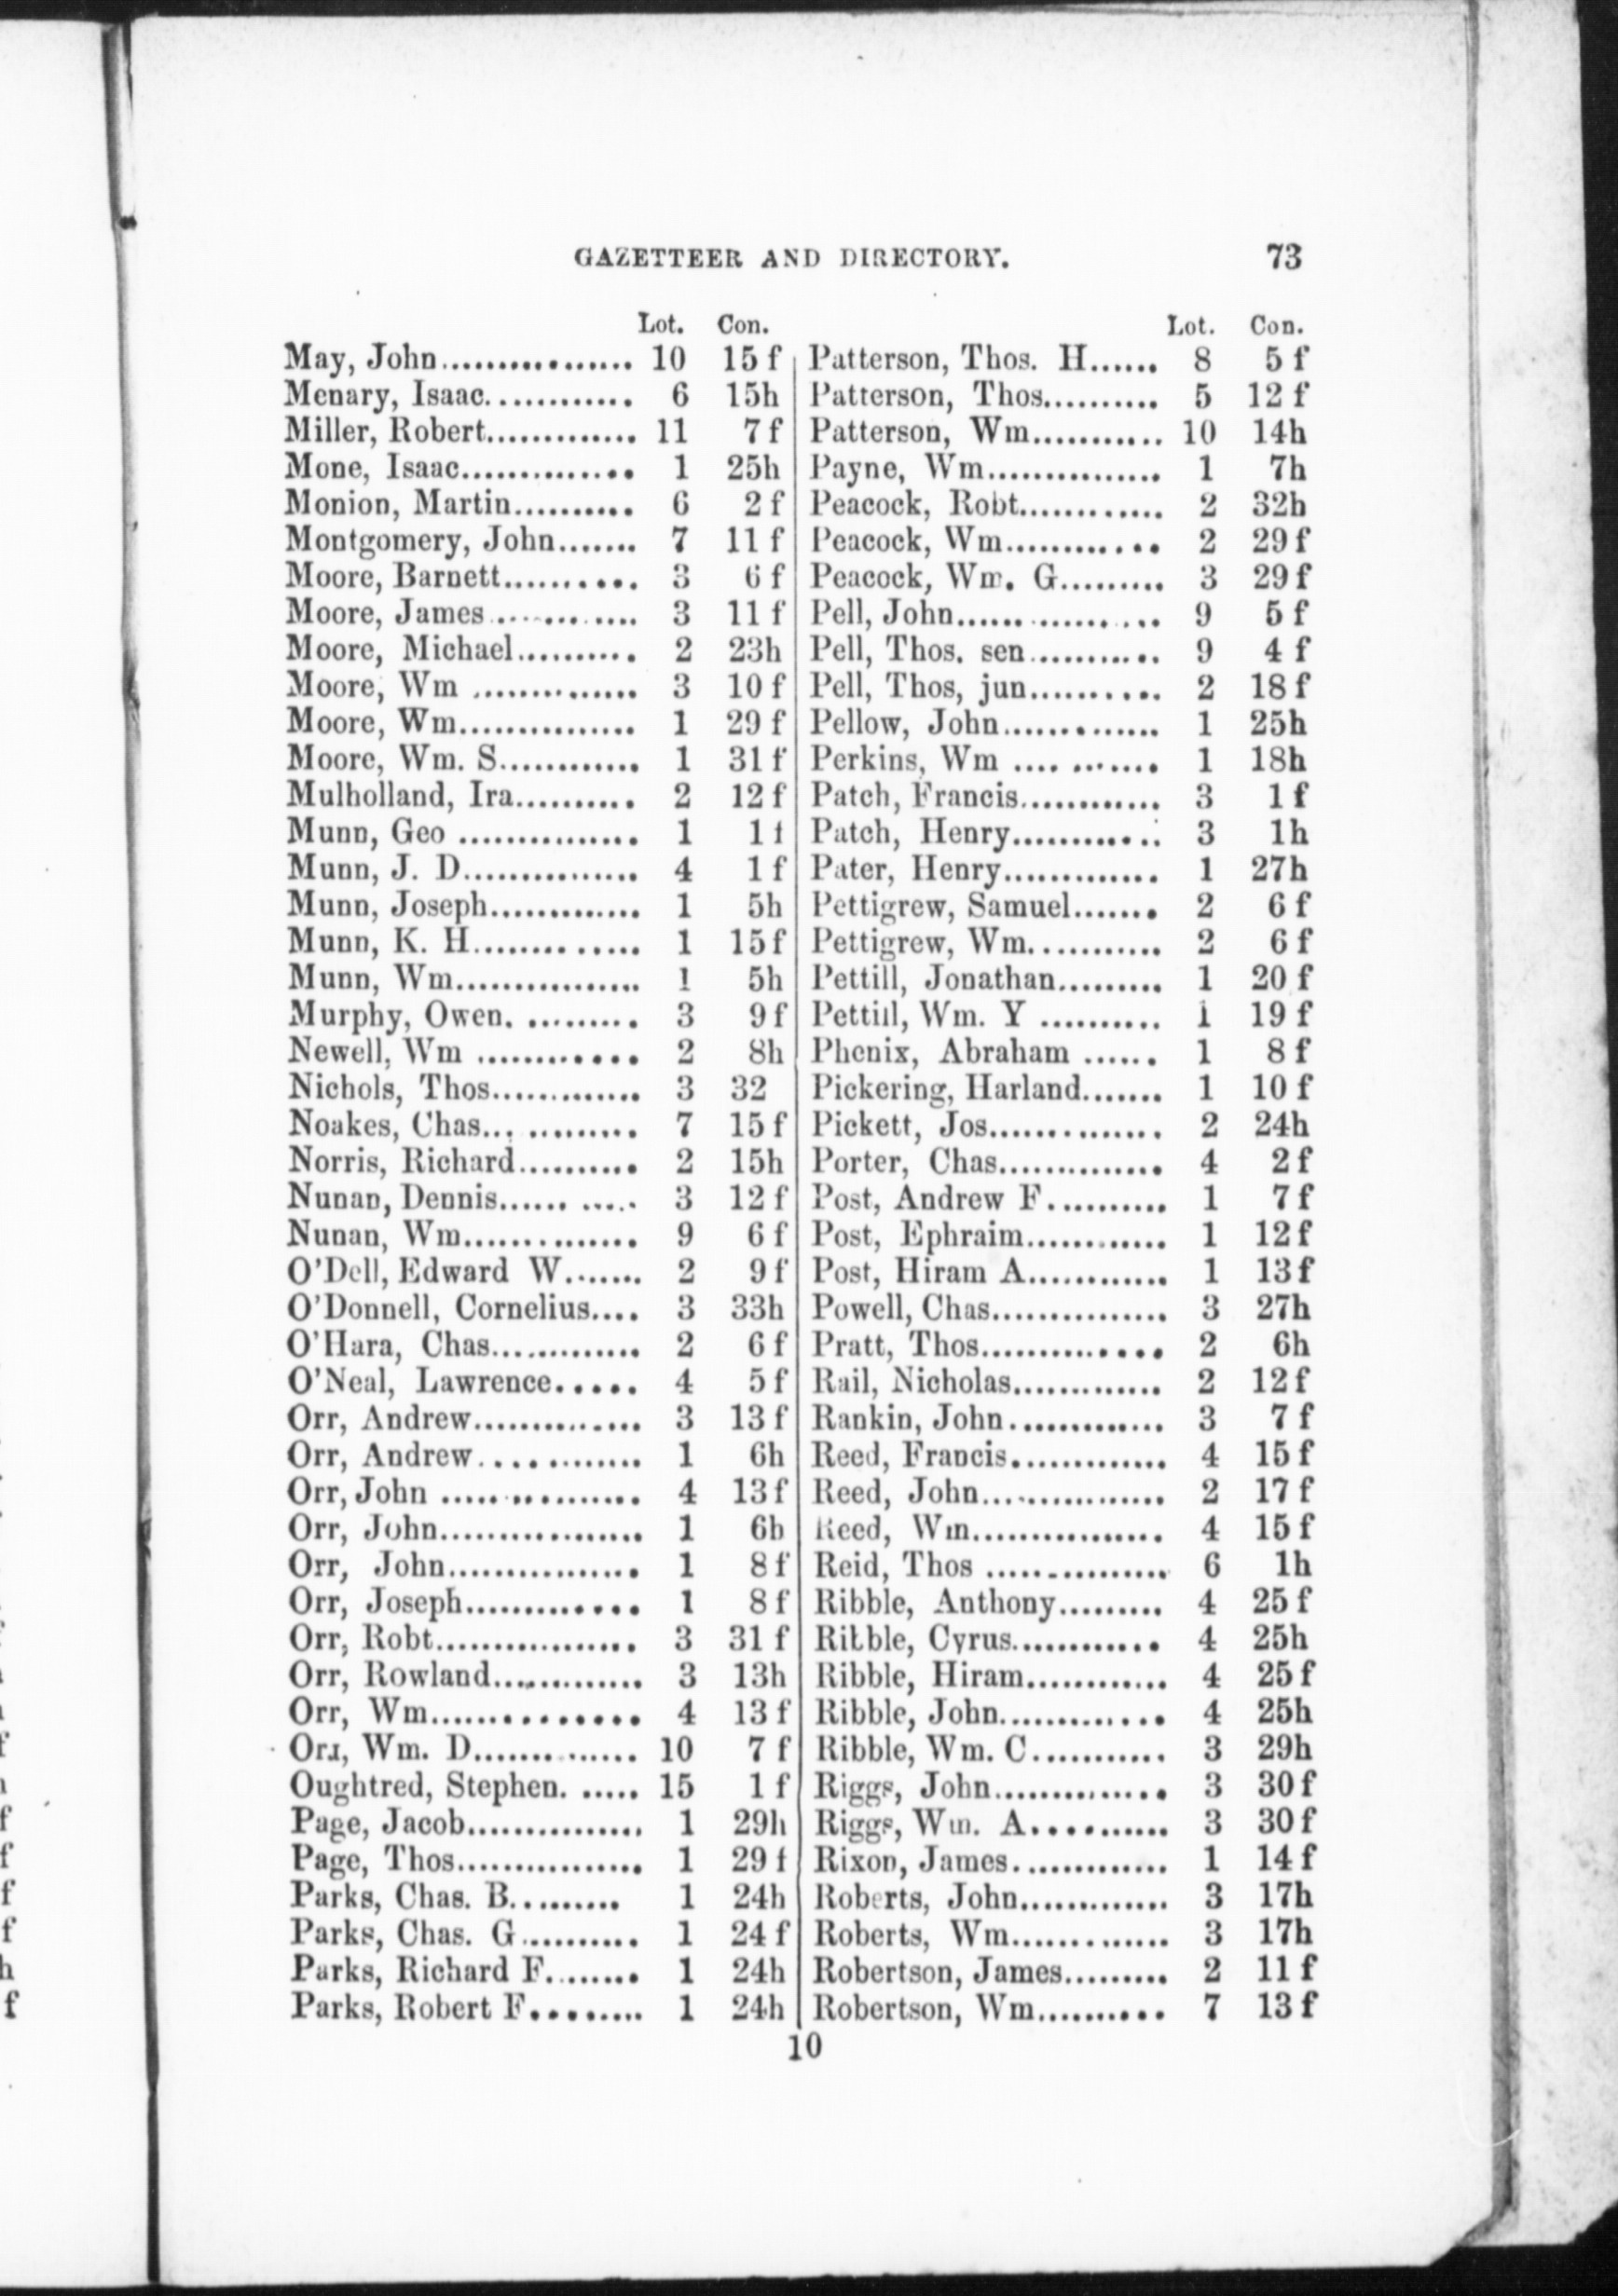 GAZETTEER AND DIRECTORY. 73
Lot. Con.
May, John................ 10 15 f
Menary, Isaac............ 6 15h
Miller, Robert............. 11 7 f
Mone, Isaac.............. 1 25h
Monion, Martin.......... 6 2 f
Montgomery, John....... 7 11 f
Moore, Barnett.......... 3 6 f
Moore, James............ 3 11 f
Moore, Michael.......... 2 23h
Moore, Wm .............. 3 10 f
Moore, Wm............... 1 29 f
Moore, Wm. S............ 1 31 f
Mulholland, Ira.......... 2 12 f
Munn, Geo ............... 1 1 f
Munn, J. D............... 4 1 f
Munn, Joseph............. 1 5h
Munn, K. H.............. 1 15 f
Munn, Wm................ 1 5h
Murphy, Owen. ......... 3 9 f
Newell, Wm ............ 2 8h
Nichols, Thos............. 3 32
Noakes, Chas... ......... 7 15 f
Norris, Richard.......... 2 15h
Nunan, Dennis...... ..... 3 12 f
Nunan, Wm.............. 9 6 f
O'Dell, Edward W....... 2 9 f
O'Donnell, Cornelius.... 3 33h
O'Hara, Chas............. 2 6 f
O'Neal, Lawrence..... 4 5 f
Orr, Andrew.............. 3 13 f
Orr, Andrew............. 1 6h
Orr, John ................ 4 13 f
Orr, John.................. 1 6h
Orr, John................. 1 8 f
Orr, Joseph............. 1 8 f
Orr, Robt................. 3 31 f
Orr, Rowland............. 3 13h
Orr, Wm............... 4 13 f
Orr, Wm. D.............. 10 7 f
Oughtred, Stephen. ..... 15 1 f
Page, Jacob................ 1 29h
Page, Thos................. 1 29 f
Parks, Chas. B.......... 1 24h
Parks, Chas. G........... 1 24 f
Parks, Richard F........ 1 24h
Parks, Robert F......... 1 24h
Lot. Con.
Patterson, Thos. H...... 8 5 f
Patterson, Thos.......... 5 12 f
Patterson, Wm........... 10 14h
Payne, Wm................ 1 7h
Peacock, Robt............. 2 32h
Peacock, Wm............ 2 29 f
Peacock, Wm. G......... 3 29 f
Pell, John................. 9 5 f
Pell, Thos. sen........... 9 4 f
Pell, Thos, jun.......... 2 18 f
Pellow, John............. 1 25h
Perkins, Wm .... ....... 1 18h
Patch, Francis............ 3 1 f
Patch, Henry............. 3 1h
Pater, Henry............. 1 27h
Pettigrew, Samuel....... 2 6 f
Pettigrew, Wm............ 2 6 f
Pettill, Jonathan......... 1 20 f
Pettill, Wm. Y .......... 1 19 f
Phenix, Abraham ...... 1 8 f
Pickering, Harland....... 1 10 f
Pickett, Jos.............. 2 24h
Porter, Chas.............. 4 2 f
Post, Andrew F.......... 1 7 f
Post, Ephraim............ 1 12 f
Post, Hiram A............ 1 13 f
Powell, Chas............... 3 27h
Pratt, Thos............... 2 6h
Rail, Nicholas............. 2 12 f
Rankin, John............. 3 7 f
Reed, Francis............. 4 15 f
Reed, John................ 2 17 f
Reed, Wm................. 4 15 f
Reid, Thos ................ 6 1h
Ribble, Anthony......... 4 25 f
Ribble, Cyrus............ 4 25h
Ribble, Hiram............ 4 25 f
Ribble, John............. 4 25h
Ribble, Wm. C............ 3 29h
Riggs, John.............. 3 30 f
Riggs, Wm. A........... 3 30 f
Rixon, James............. 1 14 f
Roberts, John............. 3 17h
Roberts, Wm.............. 3 17h
Robertson, James......... 2 11 f
Robertson, Wm.......... 7 13 f
10